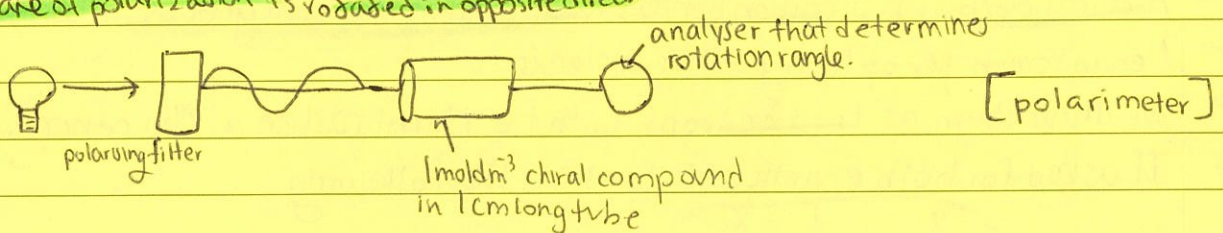 of polarization is rotated in opposite
analyser that determines
rotation range.
[polarimeter]
polarising filter
1moldm⁻³ chiral compound
in 1cm long tube